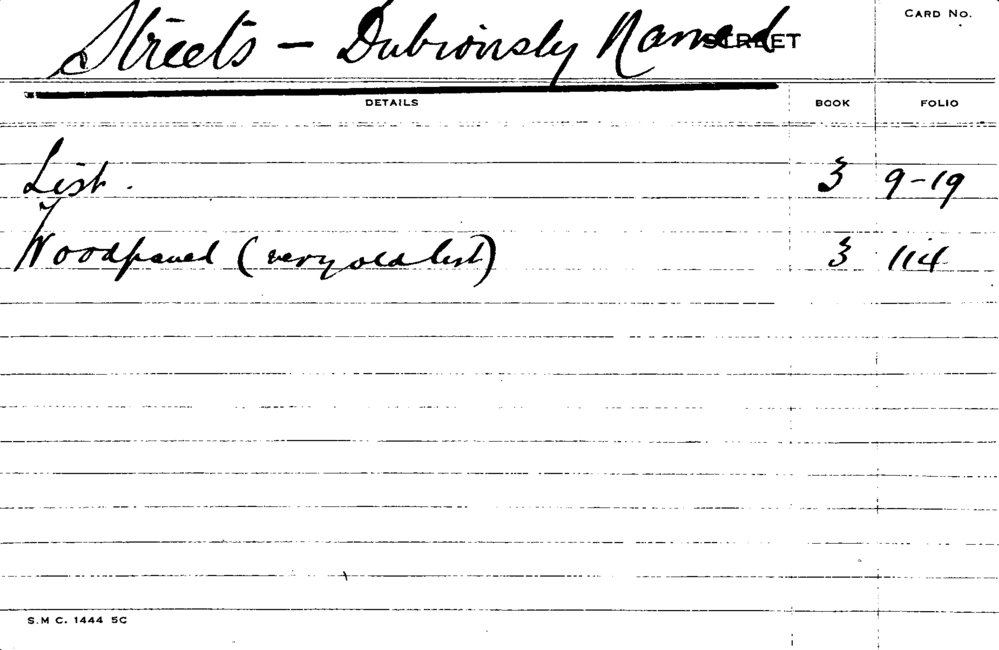 CARD No.
Streets - Dubiously Named STREET
DETAILS BOOK FOLIO
List. 3 9-19
Woodpaved (very old list) 3 114
S.M C. 1444 5C